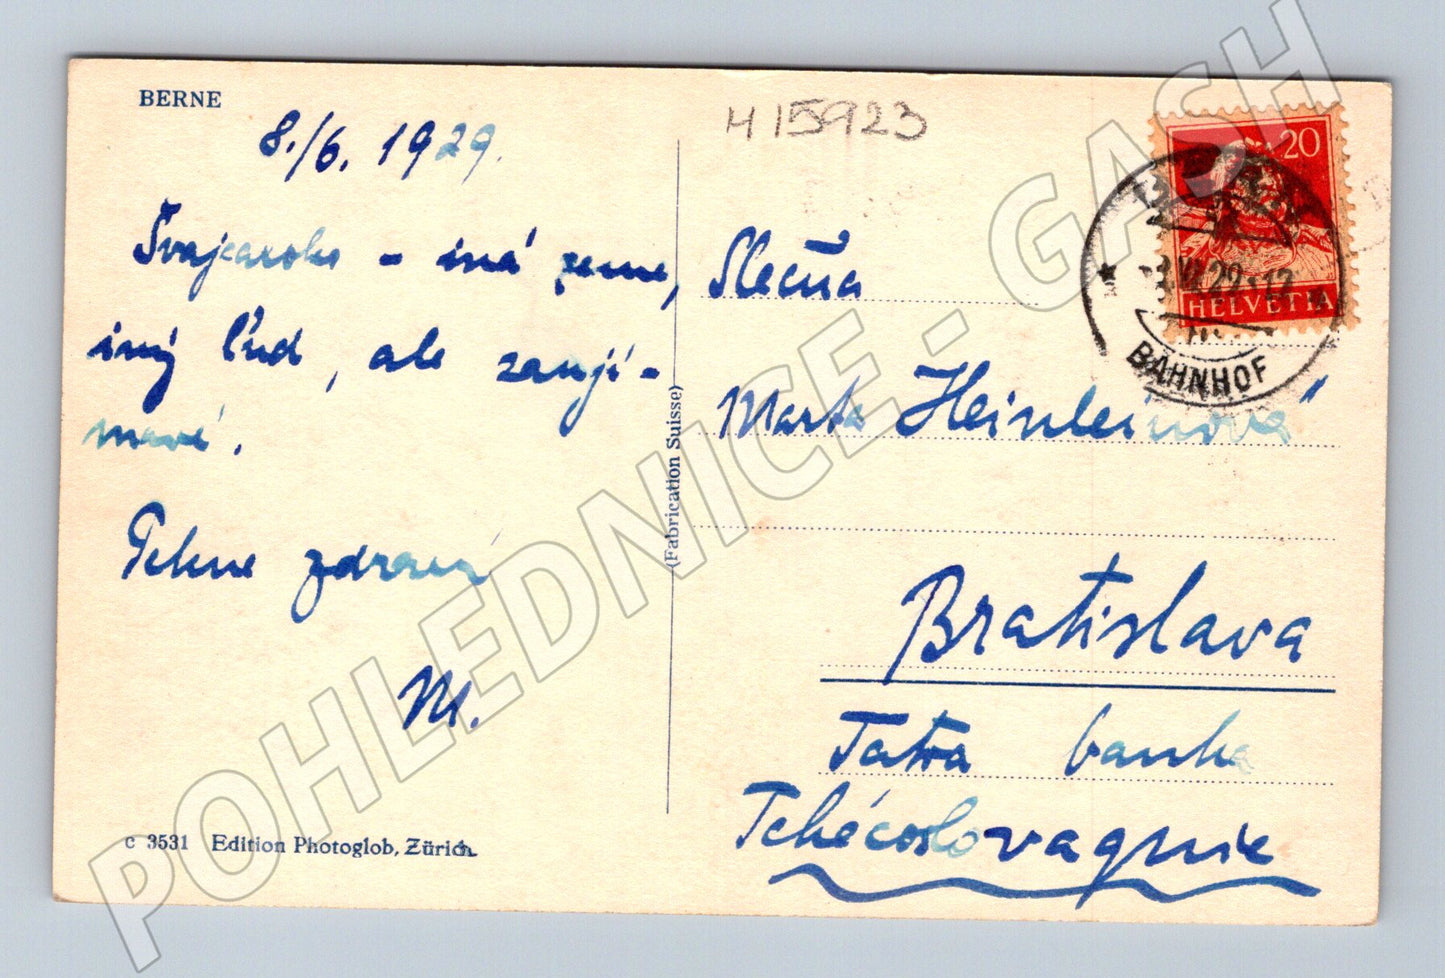 BERNE
8./6. 1929.
Švajcarsko - iná zeme,
iný ľud, ale zauji-
mavé.
Pekne zdraví
M.
c 3531 Edition Photoglob, Zürich.
(Fabrication Suisse)
H 15923
20
HELVETIA
BAHNHOF
Slečna
Marta Heinleinová
Bratislava
Tatra banka
Tchécoslovaquie
POHLEDNICE - GASH